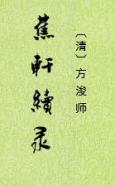 蕉軒續录
〔清〕方浚师